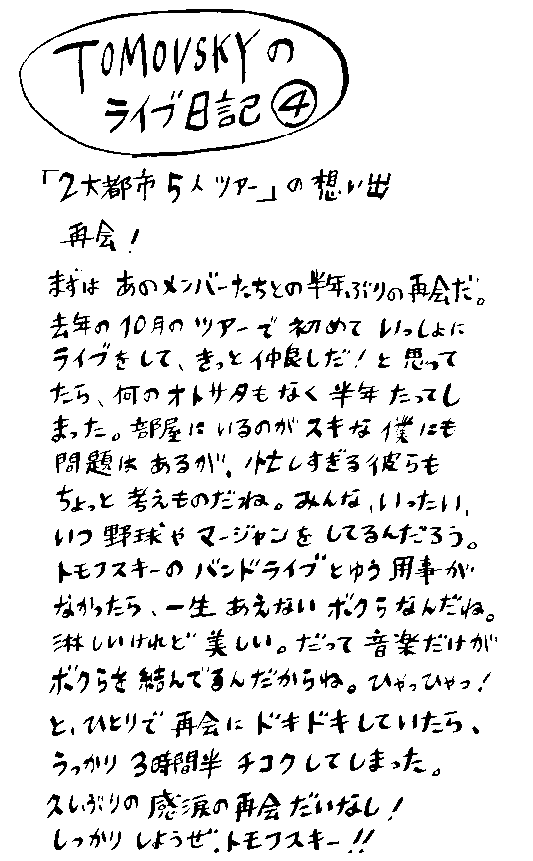 TOMOVSKYの
ライブ日記④
「2大都市5人ツアー」の想い出
再会!
まずは あのメンバーたちとの半年ぶりの再会だ。
去年の10月のツアーで 初めて いっしょに
ライブをして、きっと仲良しだ!と 思って
たら、何のオトサタもなく 半年 たってし
まった。部屋にいるのがスキな 僕にも
問題は あるが、忙しすぎる彼らも
ちょっと 考えものだね。みんな、いったい、
いつ 野球や マージャンを してるんだろう。
トモフスキーの バンドライブとゆう 用事が
なかったら、一生 あえない ボクらなんだね。
淋しいけれど 美しい。だって 音楽だけが
ボクらを 結んでるんだからね。ひゃっひゃっ!
と、ひとりで 再会に ドキドキしていたら、
うっかり 3時間半 チコクしてしまった。
久しぶりの 感涙の再会 だいなし!
しっかり しようぜ、トモフスキー!!